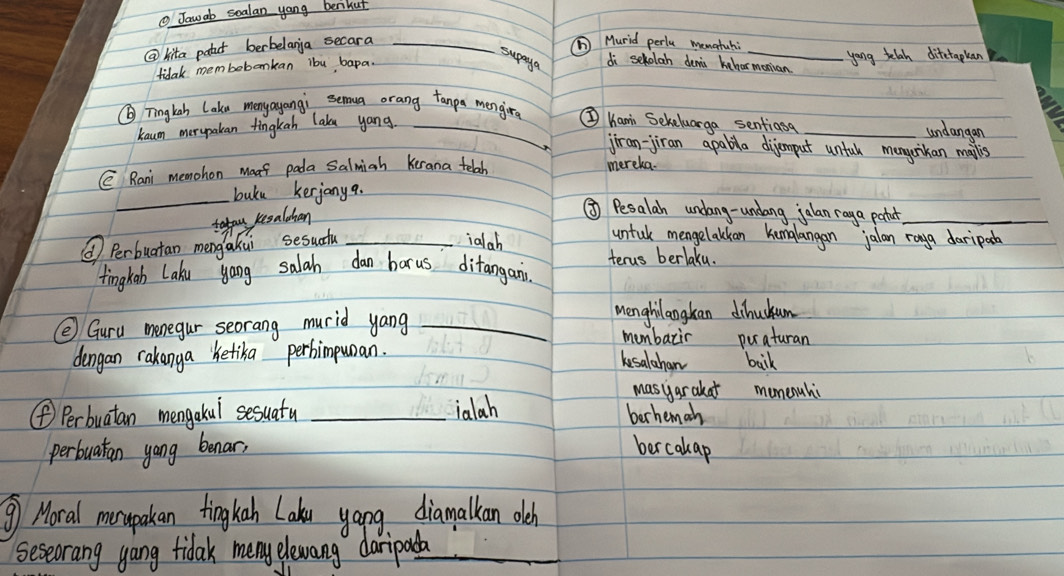 ① Jawab soalan yang berikut
ⓐ kita patut berbelanja secara ________ supaya
tidak membebankan ibu bapa.
ⓑ Tingkah Laku menyayangi semua orang tanpa mengira
kaum merupakan tingkah laku yang ________
ⓒ Rani memohon maaf pada Salmiah kerana telah
________ buku kerjanya.
kesalahan
ⓓ Perbuatan mengakui sesuatu ________ ialah
tingkah Laku yang salah dan harus ditangani.
ⓔ Guru menegur seorang murid yang ________
dengan rakanya ketika perhimpunan.
ⓕ Perbuatan mengakui sesuatu ________ ialah
perbuatan yang benar,
ⓖ Moral merupakan tingkah Laku yang diamalkan oleh
seseorang yang tidak menyelewang daripada ________
ⓗ Murid perlu mematuhi ________ yang telah ditetapkan
di sekolah demi keharmonian
Ⓘ Kami Sekeluarga sentiasa ________ undangan
jiran-jiran apabila dijemput untuk mengrikan majlis
mereka.
Ⓙ Pesalah undang-undang jalan raya patut ________
untuk mengelakkan kemalangan jalan raya daripada
terus berlaku.
menghilangkan dihukum
membazir peraturan
kesalahan baik
masyarakat memenuhi
berhemah
bercakap